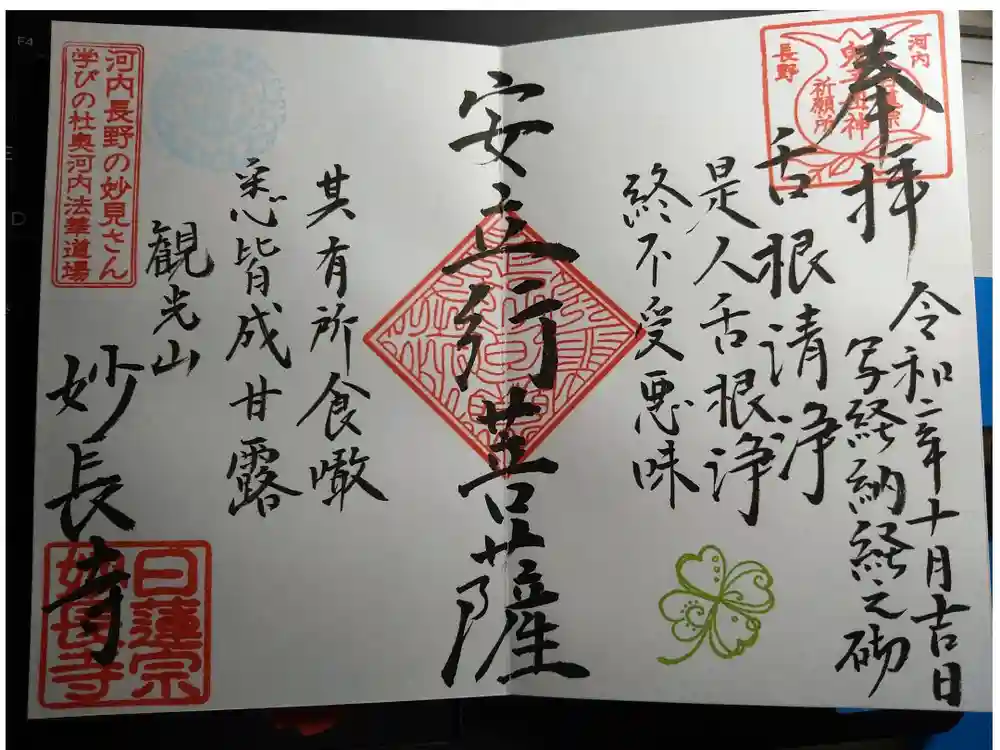 奉拝
令和二年十月吉日
写経納経之砌
河内
長野
祈願所
舌根請浄
是人舌根浄
終不受悪味
安立行菩薩
其有所食噉
悉皆成甘露
観光山
妙長寺
河内長野の妙見さん
学びの杜奥河内法華道場
日蓮宗
妙長寺
F4
D